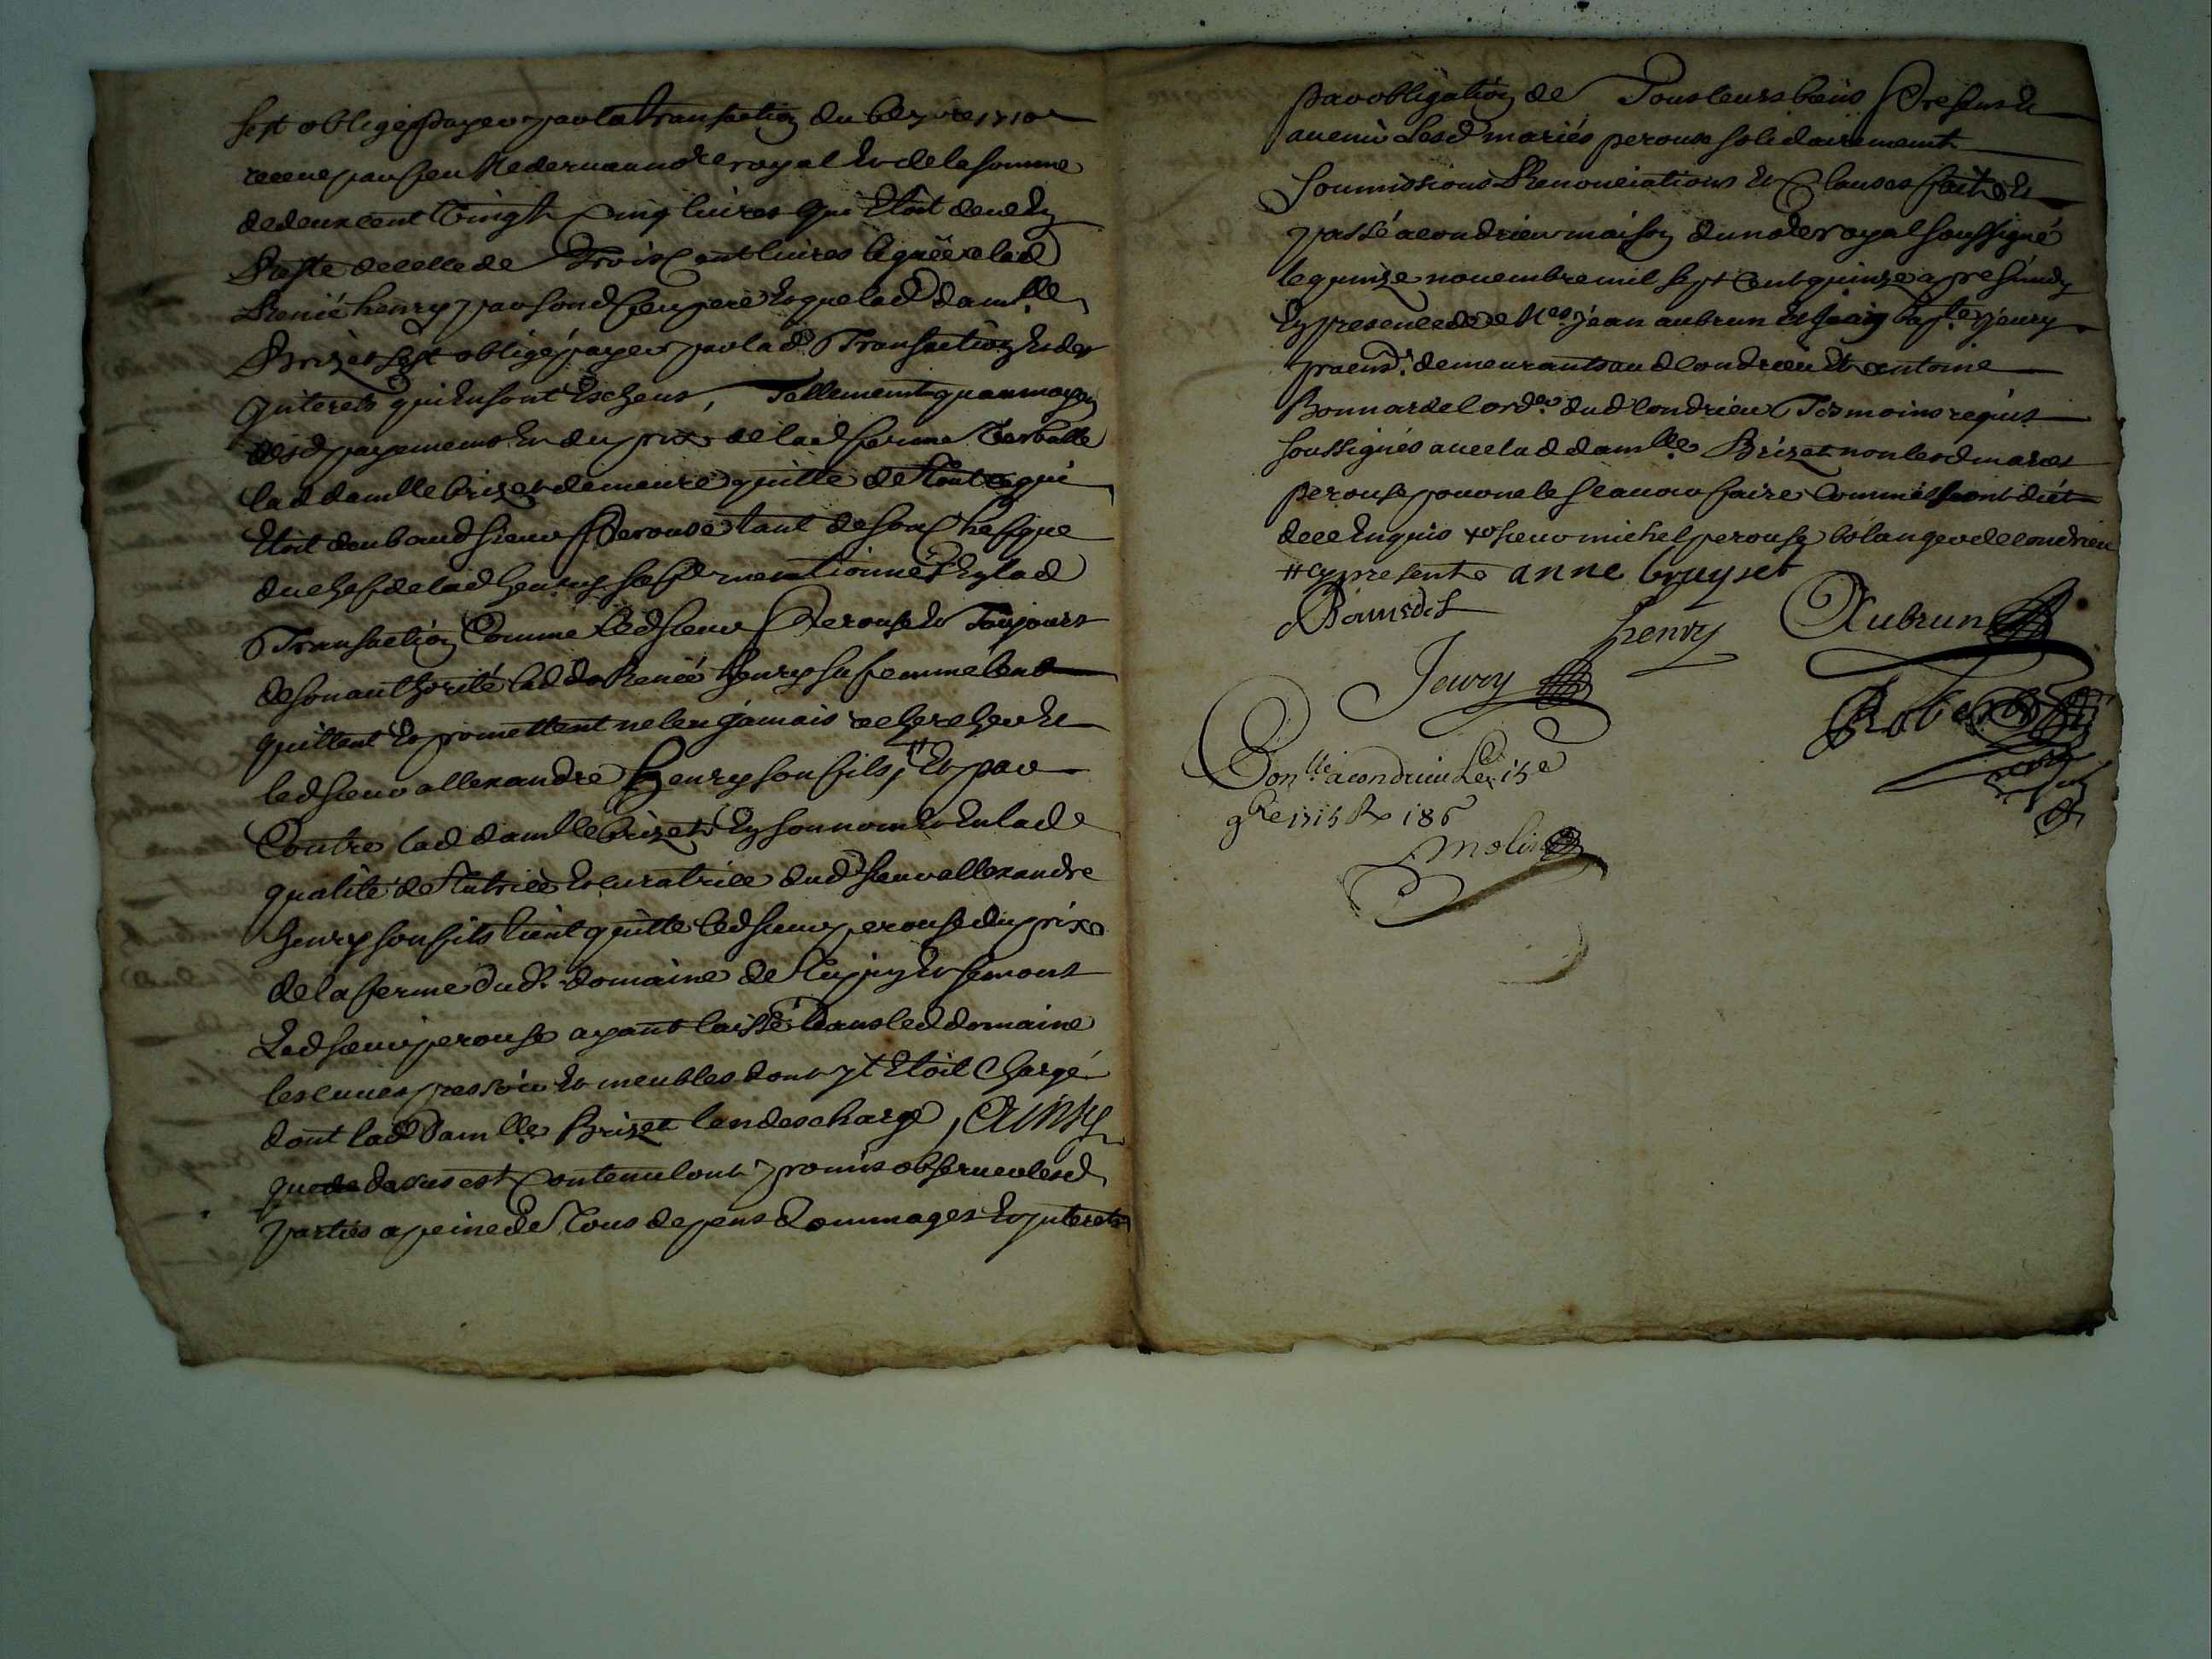 sest obligé payer par la transaction du 6e 7bre 1710
receue par feu Me dernaud no.re royal Et de la somme
de deux cent vingt cinq livres qui Etoit deue En
Reste de celle de Trois Cent livres leguée a lad
Renée henry par sond feu pere Et que lad damlle
Brizet sest obligé payer par lad Transaction Et des
Interets qui En sont Escheus, Tellement quau moyen
desd payements Et du prix de lad ferme verballe
lad damlle brizet demeure quitte de Tout ce qui
Etoit deub aud sieur Perouse tant de son Chef que
du chef de lad henry sa f mentionnés En lad
Transaction Comme led sieur Perouse Et Toujours
de son authorité lad da Renée henry sa femme lent
quittent Et promettent ne len jamais rechercher Et
led sieur allexandre henry son fils, # Et par
Contre lad damlle brizet En son nom Et En lade
qualité de Tutrice Et curatrice dud sieur allexandre
henry son fils tient quitte led sieur perouse du prix
de la ferme dud. domaine de Et semons
Led sieur perouse ayant laissé dans led domaine
les cuves pressoir Et meubles dont yl Etoit Chargé
dont lad Damlle Brizet len descharge, Ainsy
que dessus est Contenu lont promis observer lesd
parties a peine de Tous depens Dommages Et Interets
Par obligation de Tous leurs biens Presens Et
avenir Lesd mariés perouse solidairement
soumissions Renonciations Et Clauses fait Et
passé a condrieu maison du no.re royal soussigné
le quinze novembre mil sept Cent quinze apres midy
En presence de Mes. jean aubrun Et jean bapte. jeury
praens. demeurants aud Condrieu Et antoine
Bonnardel cordr. dud Condrieu Tesmoins requis
soussignés avec lad damlle. Brizet non lesd mariés
perouse pour ne le scavoir faire Comme ils ont dict
de ce Enquis + sieur michel perouse bolanger de condrieu
# cy presente anne bruyset
Jeury
henry
Aubrun
Robert
Conlle a condrieu Le 15e
9bre 1715 R 186
molin